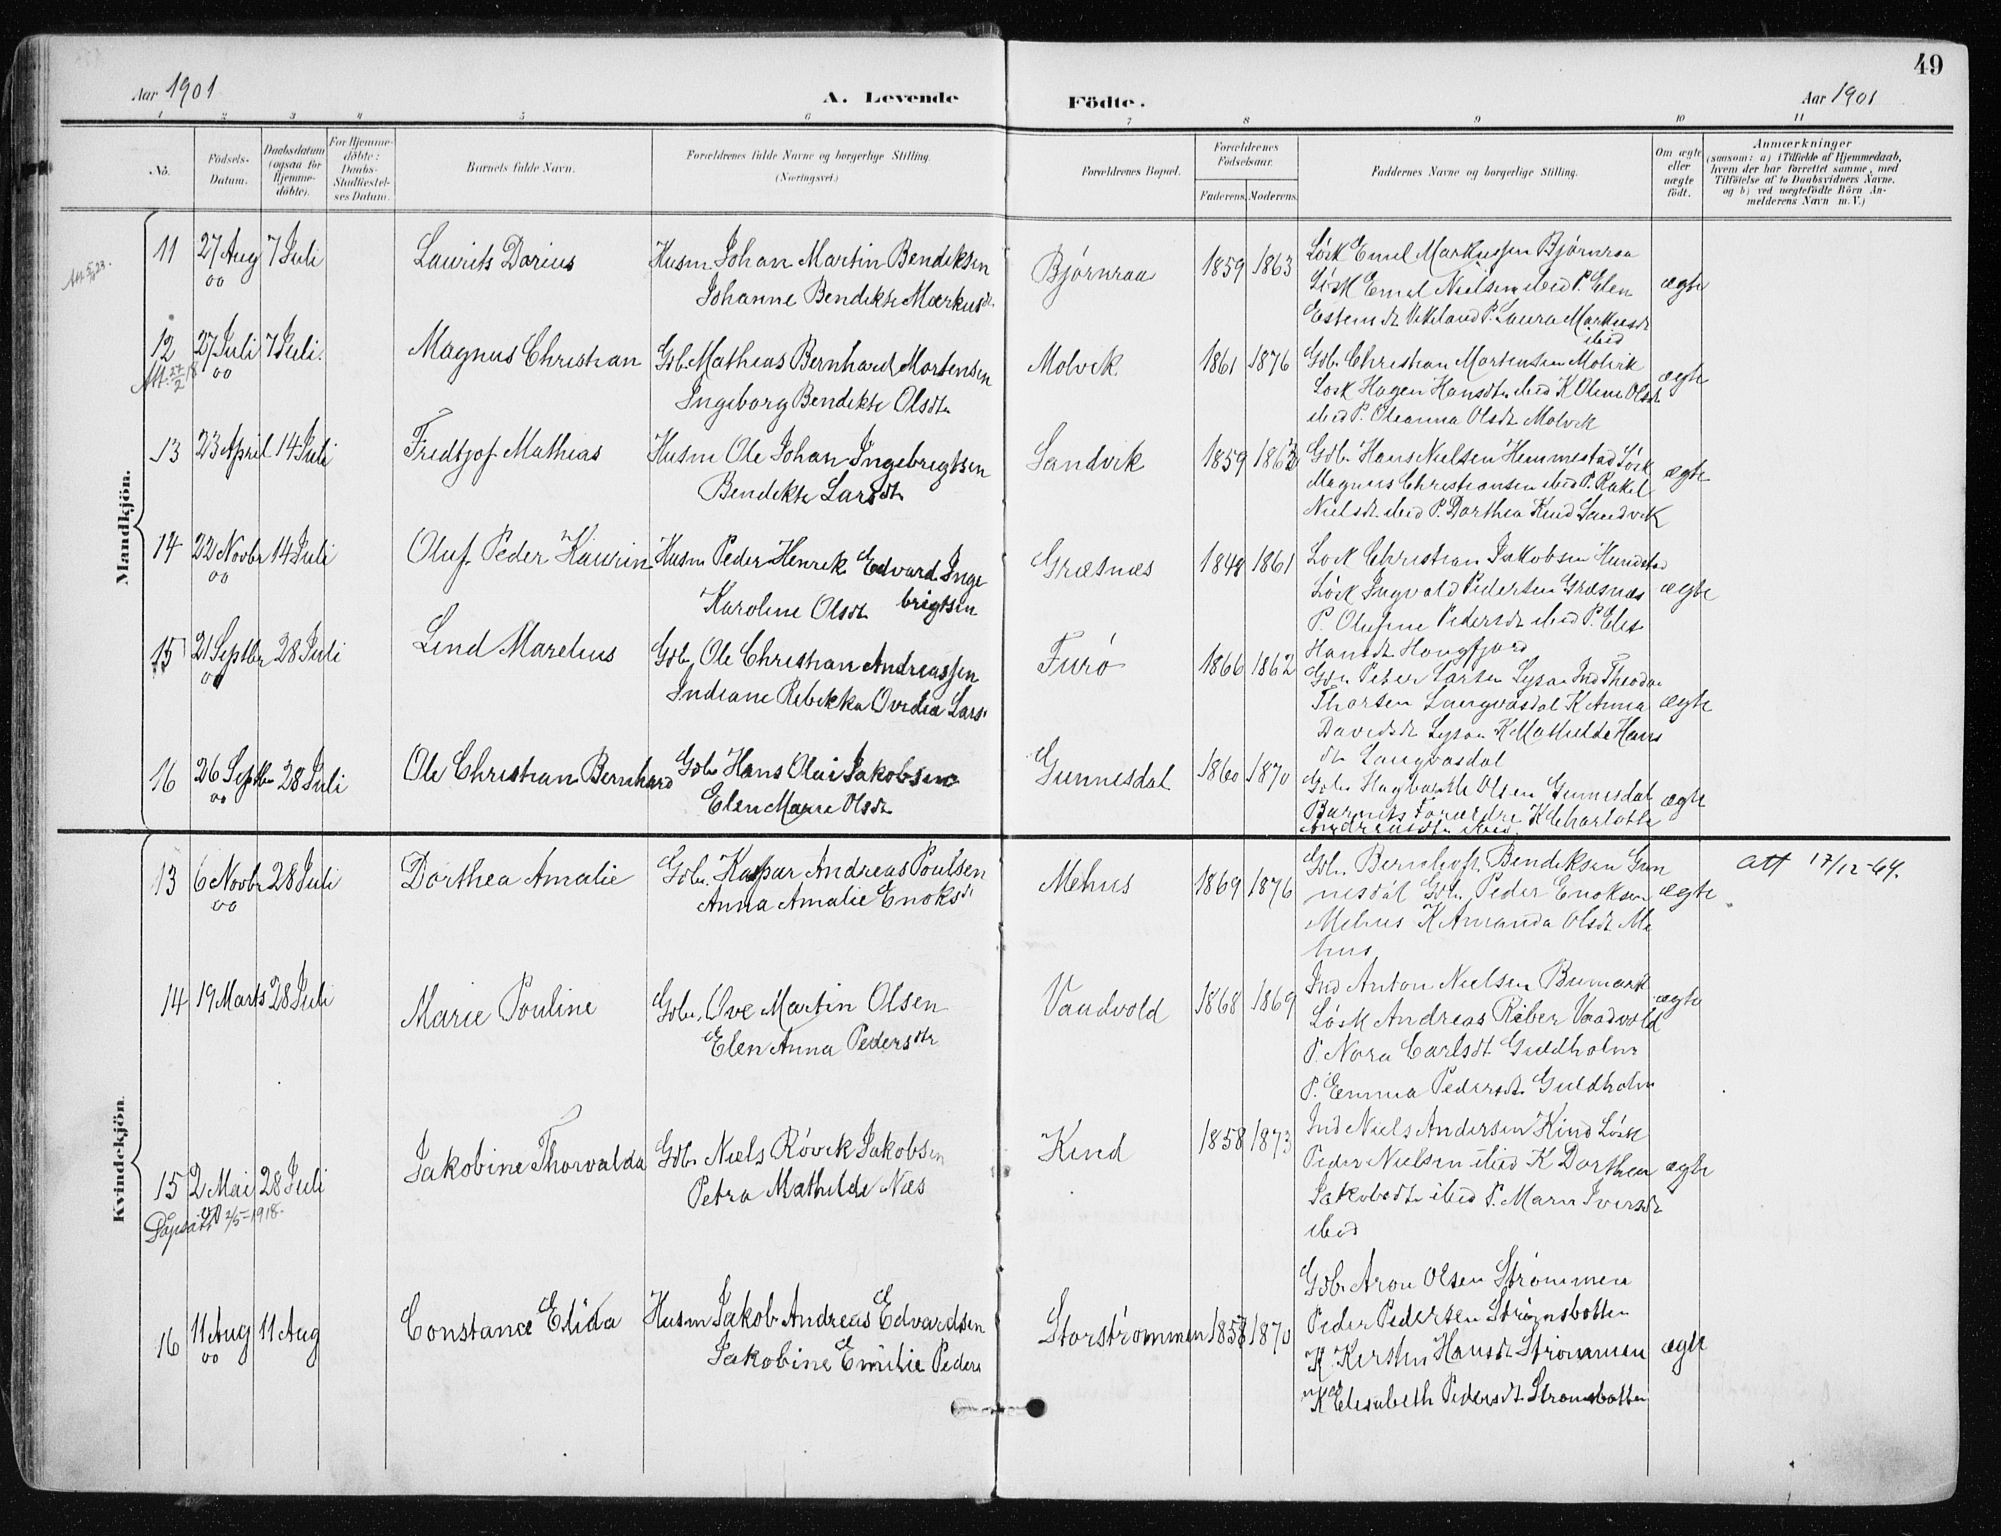 49
Aar 1901
A. Levende
Födte.
Aar 1901
1 2 3 4 5 6 7 8 9 10 11
No.
Födsels-
Datum.
Daabsdatum
(ogsaa for
Hjemme-
döbte).
For Hjemme-
döbte:
Daabs-
Stadfæstel-
ses Datum.
Barnets fulde Navn.
Forældrenes fulde Navne og borgerlige Stilling.
(Næringsvei.)
Forældrenes Bopæl.
Forældrenes
Födselsaar.
Faderens. Moderens.
Faddernes Navne og borgerlige Stilling.
Om ægte
eller
uægte
födt.
Anmærkninger
(saasom: a) i Tilfælde af Hjemmedaab,
hvem der har forrettet samme, med
Tilföielse af to Daabsvidners Navne,
og b) ved uægtefödte Börn An-
melderens Navn m. V.)
Mandkjön.
11 27 Aug 00 7 Juli
Laurits Dorius
Husm Johan Martin Bendiksen
Johanne Bendikte Markusdt.
Bjørnraa
1859 1863
Løsk Emil Markussen Bjørnraa
Løsk Emil Nielsen ibid P. Elen
Estensdt Vikeland P. Laura Markusdt
ibid
ægte
12 27 Juli 00 7 Juli.
Att. 27/2 18
Magnus Christian
Gdb. Mathias Bernhard Mortensen
Ingeborg Bendikte Olsdtr
Molvik
1861 1876
Gdb. Christian Mortensen Molvik
Løsk Hagen Hansdtr ibid K Oline Olsdt
ibid P. Oleanna Olsdt Molvik
ægte
13 23 April 14 Juli
Fredtjof Mathias
Husm Ole Johan Ingebrigtsen
Bendikte Larsdt
Sandvik
1859 1863
Gdb. Hans Nielsen Hemmestad Løsk
Magnus Christiansen ibid P. Rakel
Nielsdt ibid P. Dorthea Kind Sandvik
ægte
14 22 Novbr 00 14 Juli
Oluf Peder Kaurin
Husm Peder Henrik Edvard Inge
brigtsen
Karoline Olsdt
Græsnæs
1848 1861
Løsk Christian Jakobsen Hundstad
Løsk Ingvald Pedersen Græsnæs
P. Olufine Pedersdt ibid P. Elis
Hansdt Hongfjord
ægte
15 21 Septbr 00 28 Juli
Lind Marelius
Gdb. Ole Christian Andreassen
Indiane Rebekka Ovidia Lars.
Furø
1866 1862
Gdb. Peter Larsen Lysaa Ind Theodor
Thorsen Langvasdal K Anna
Davidsdt Lysaa K Mathilde Hans
dt Langvasdal
ægte
16 26 Septbr 00 28 Juli
Ole Christian Bernhard
Gdb Hans Olai Jakobsen
Elen Marie Olsdt
Gunnesdal
1860 1870
Gdb Hagbarth Olsen Gunnesdal
Barnets Forældre K Charlotte
Andreasdtr ibid.
ægte
Kvindekjön.
13 6 Novbr 00 28 Juli
Dorthea Amalie
Gdb. Kaspar Andreas Poulsen
Anna Amalie Enoksdt
Mehus
1869 1876
Gdb. Bernhoft Bendiksen Gun
nesdal Gdb. Peder Enoksen
Mehus K Amanda Olsdt Me
hus
ægte
att 17/12-64.
14 19 Marts 28 Juli
Marie Pouline
Gdb. Ove Martin Olsen
Elen Anna Pedersdtr
Vaadvold
1868 1869
Ind Anton Nielsen Bumark
Løsk Andreas Riber Vaadvold
P. Nora Carlsdt Guldholm
P. Emma Pedersdt Guldholm
ægte
15 2 Mai 28 Juli
2/5-1918.
Jakobine Thorvalda
Gdb. Niels Røvik Jakobsen
Petra Mathilde Næs
Kind
1858 1873
Ind Niels Andersen Kind Løsk
Peder Nielsen ibid K Dorthea
Jakobsdt ibid P. Marie Iversdt
ibid
ægte
16 11 Aug 00 11 Aug
Constance Elida
Husm Jakob Andreas Edvardsen
Jakobine Emilie Peders
Storstrømmen
1858 1870
Gdb. Aron Olsen Strømmen
Peder Pedersen Strømsbotten
K. Kirsten Hansdt Strømmen
K Elisabeth Pedersdt Strømsbotten
ægte